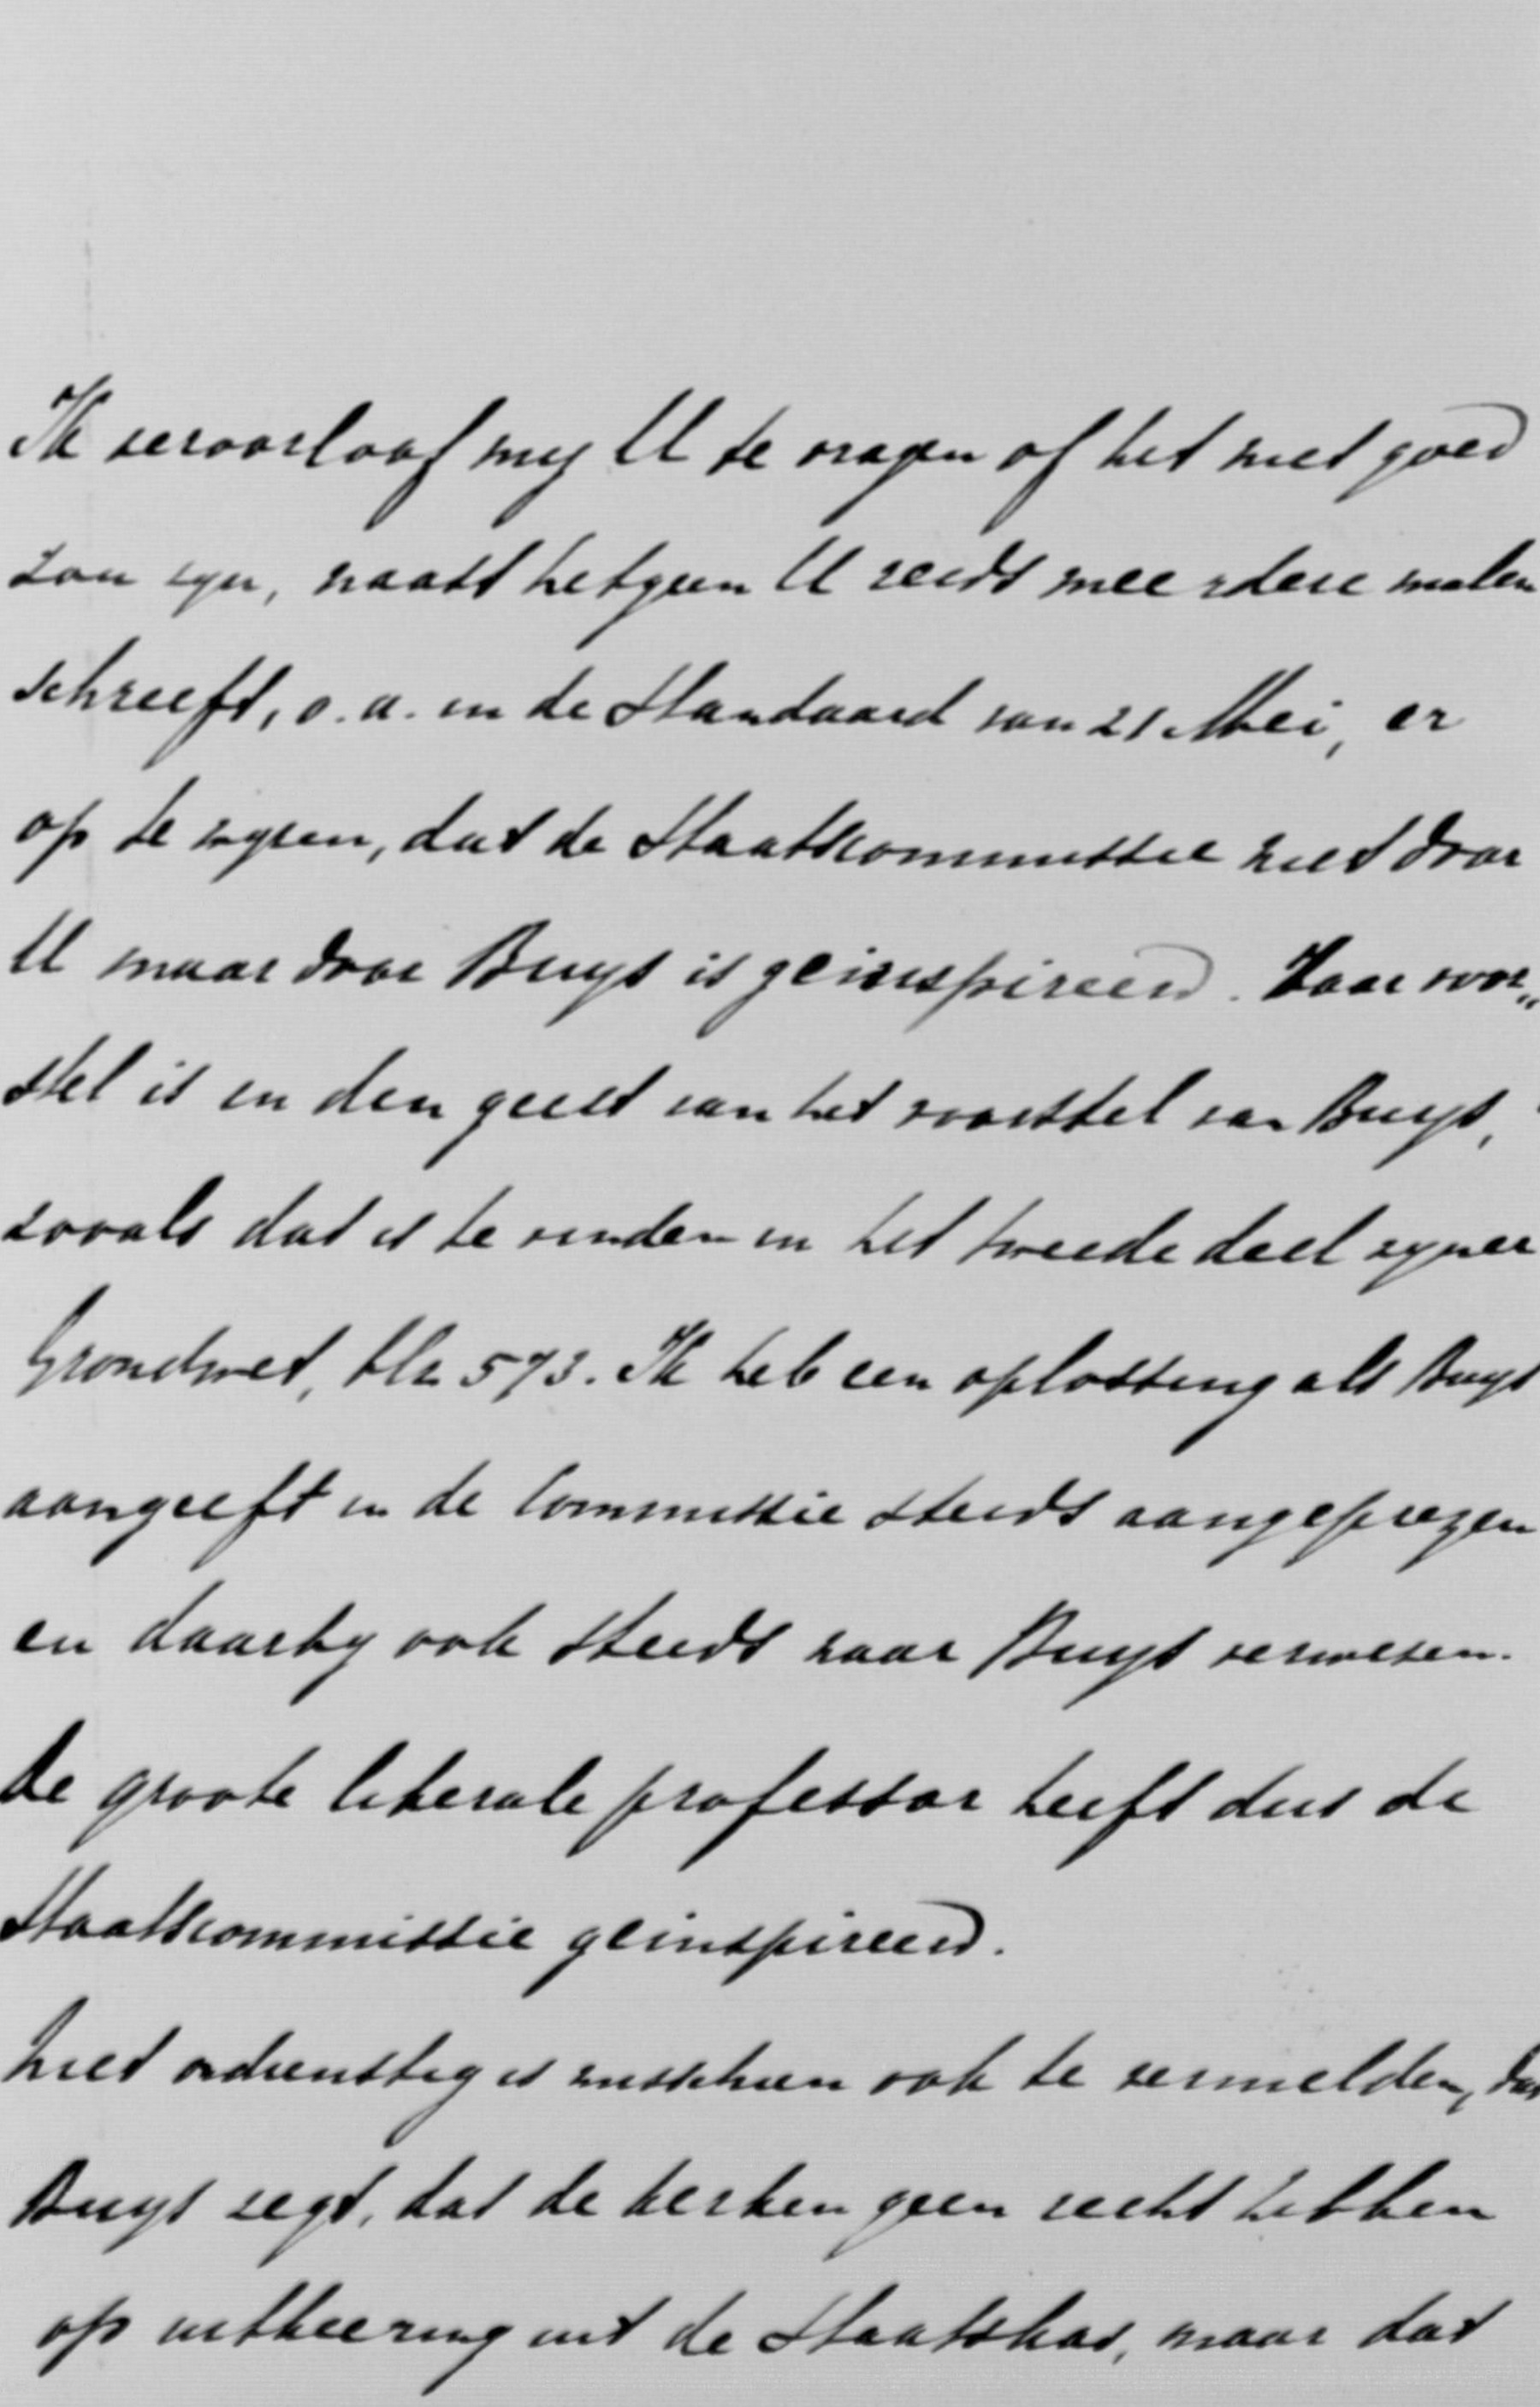 Ik veroorloof mij U te vragen of het niet goed
zou zijn, naast hetgeen U reeds meerdere malen
schreeft, o.a. in de Standaard van 21 Mei, er
op te wijzen, dat de Staatscommissie niet door
U maar door Buys is geïnspireerd. Haar voor„
stel is in den geest van het voorstel van Buys,
zooals dat is te vinden in het tweede deel zijner
Grondwet, blz 573. Ik heb een oplossing als Buys
aangeeft in de Commissie steeds aangeprezen
en daarbij ook steeds naar Buys verwezen.
De groote liberale professor heeft dus de
Staatscommissie geinspireerd.
Niet ondienstig is misschien ook te vermelden, dat
Buys zegt, dat de kerken geen recht hebben
op uitkeering uit de Staatskas, maar dat